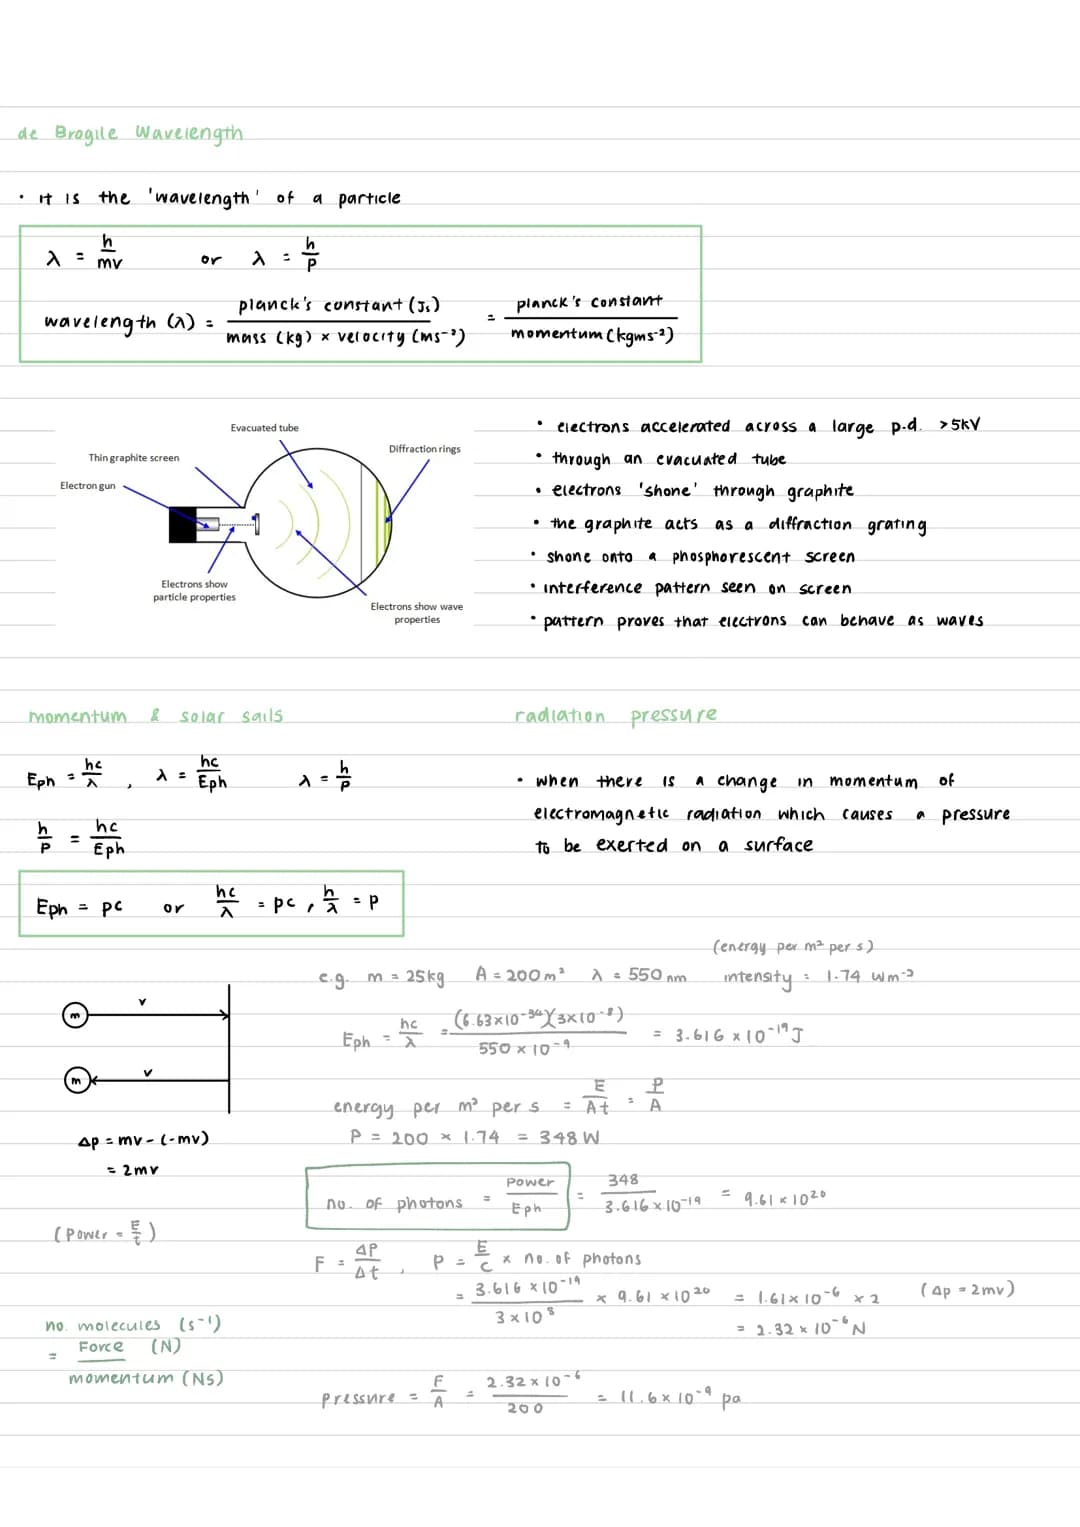 de Brogile Wavelength
• it is the 'wavelength' of a particle
λ = h/mv or λ = h/p
wavelength (λ) = planck's constant (Js) / mass (kg) × velocity (ms⁻²) = planck's constant / momentum (kgms⁻²)
Evacuated tube
Thin graphite screen
Diffraction rings
Electron gun
Electrons show particle properties
Electrons show wave properties
• electrons accelerated across a large p.d. >5kV
• through an evacuated tube
• electrons 'shone' through graphite
• the graphite acts as a diffraction grating
• shone onto a phosphorescent screen
• interference pattern seen on screen
• pattern proves that electrons can behave as waves
momentum & solar sails
Eph = hc/λ , λ = hc/Eph λ = h/p
h/p = hc/Eph
Eph = pc or hc/λ = pc , h/λ = p
m v
m v
Δp = mv - (-mv)
= 2mv
(Power = E/t)
no. molecules (s⁻¹)
= Force (N) / momentum (Ns)
radiation pressure
• when there is a change in momentum of
electromagnetic radiation which causes a pressure
to be exerted on a surface
(energy per m² per s)
e.g. m = 25kg A = 200m² λ = 550nm intensity = 1.74 Wm⁻²
Eph = hc/λ = (6.63×10⁻³⁴)(3×10⁻⁸) / 550×10⁻⁹ = 3.616 × 10⁻¹⁹ J
energy per m² per s = E/At = P/A
P = 200 × 1.74 = 348 W
no. of photons = Power/Eph = 348 / 3.616×10⁻¹⁹ = 9.61 × 10²⁰
F = ΔP/Δt , P = E/c × no. of photons
= 3.616×10⁻¹⁹ / 3×10⁸ × 9.61×10²⁰ = 1.61×10⁻⁶ × 2 (Δp = 2mv)
= 2.32 × 10⁻⁶ N
pressure = F/A = 2.32×10⁻⁶ / 200 = 11.6×10⁻⁹ pa